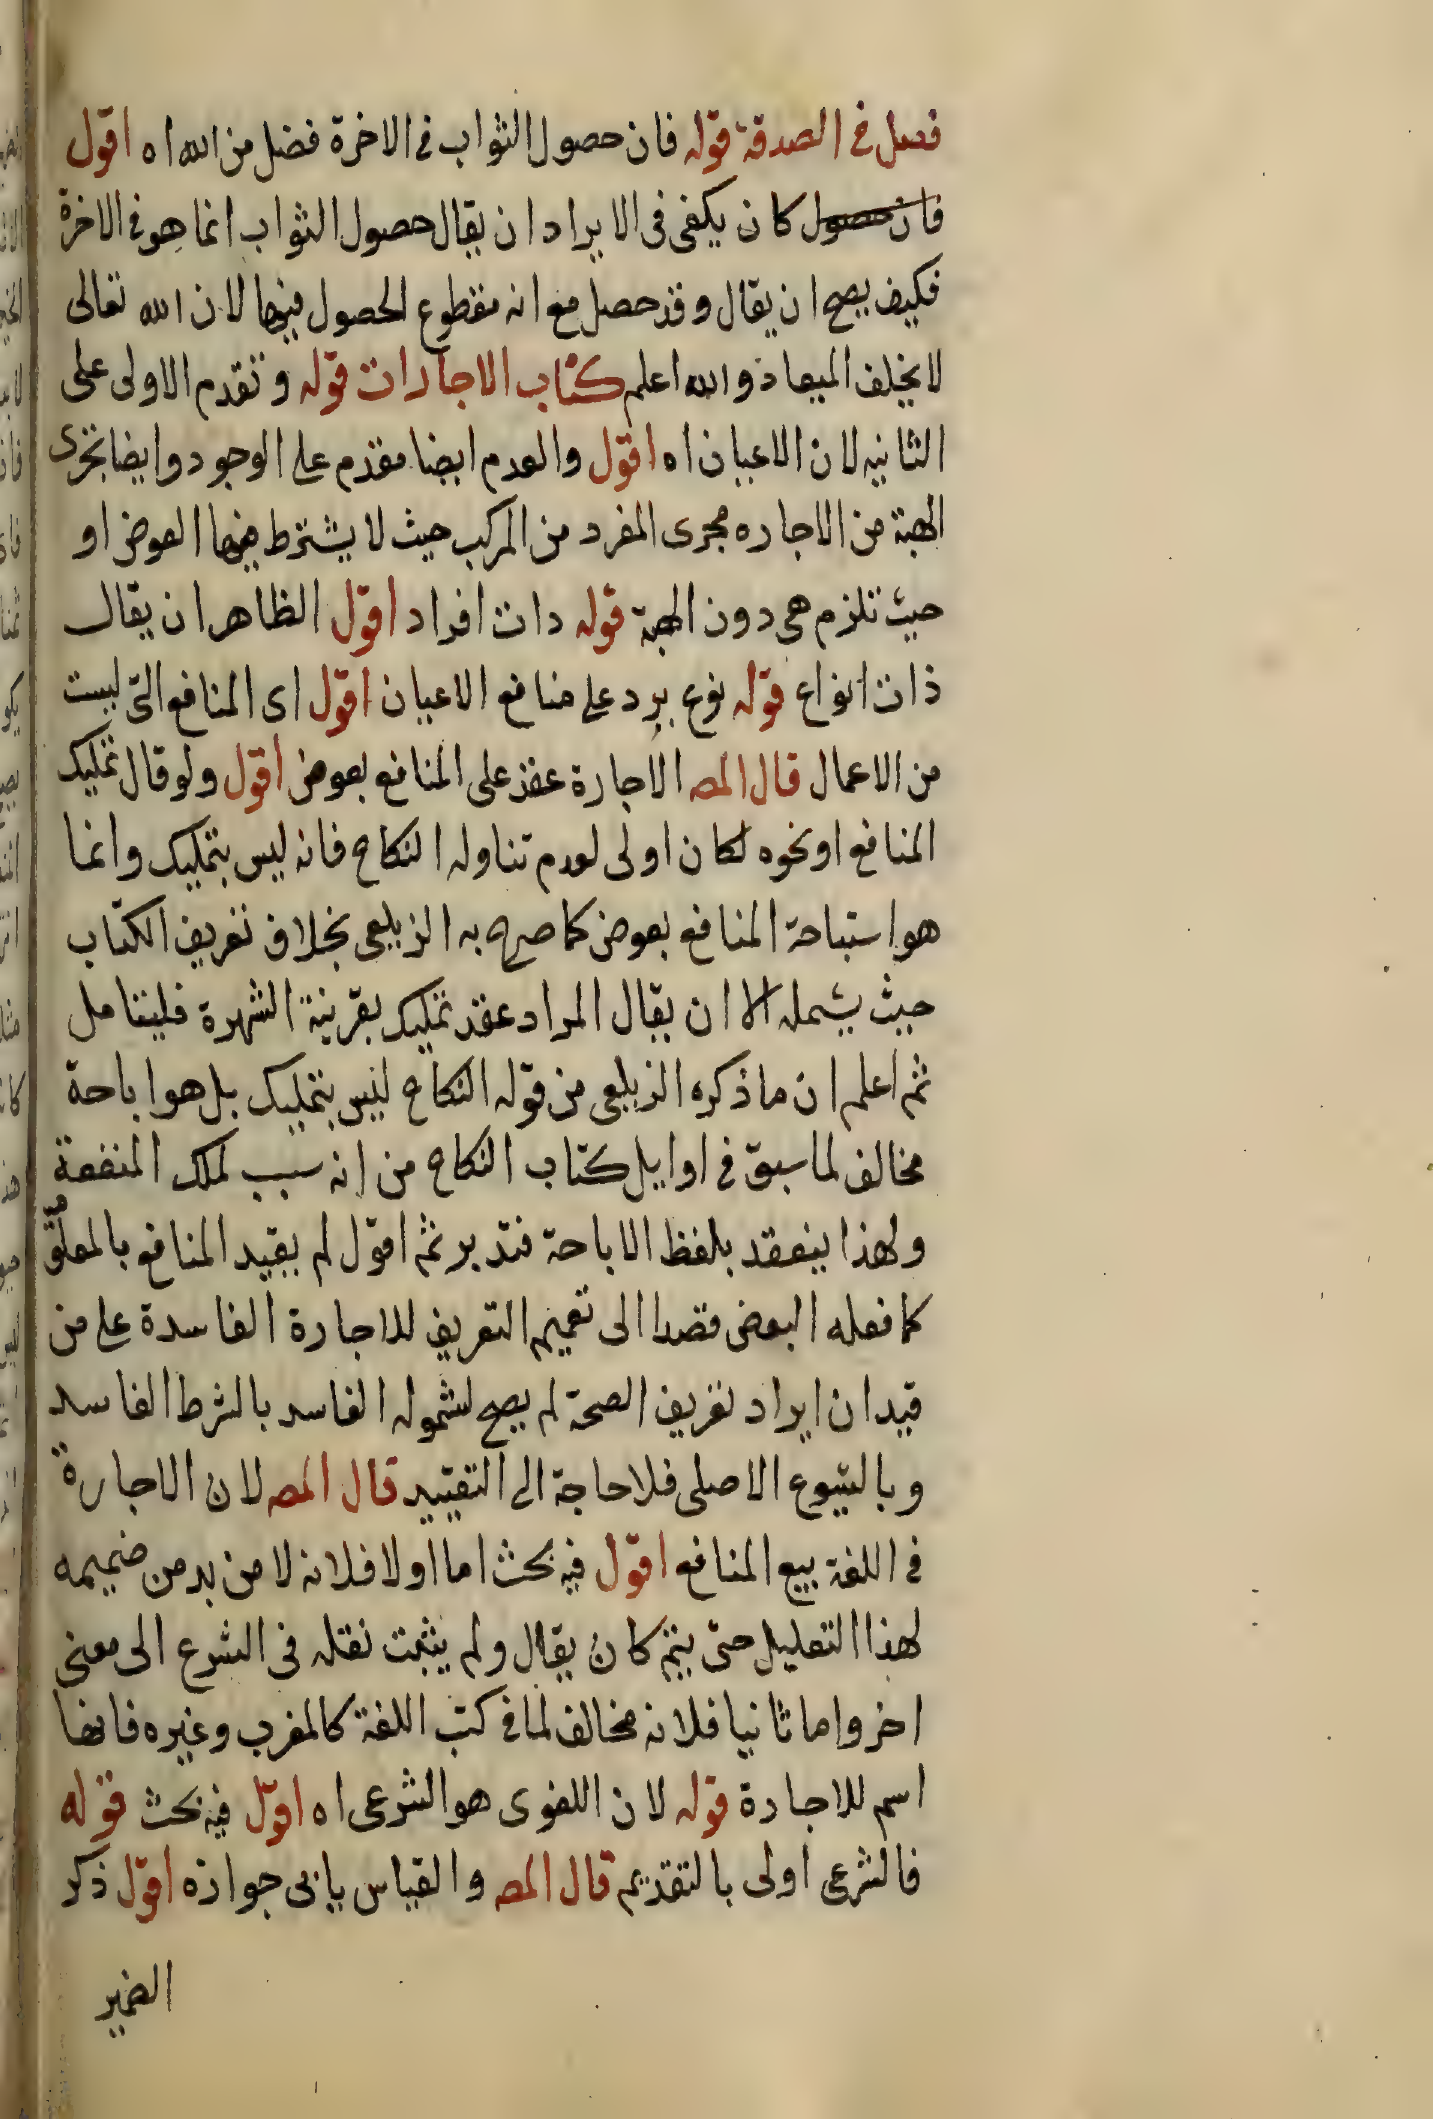 فصل في الصدقة قوله فان حصول الثواب في الاخرة فضل من الله اه اقول
فان حصول كان يكفي في الايراد ان يقال حصول الثواب انما هو في الاخرة
فكيف يصح ان يقال وقد حصل مع انه مقطوع الحصول فيهما لان الله تعالى
لا يخلف الميعاد والله اعلم كتاب الاجارات قوله وتقدم الاولى على
الثانيه لان الاعيان اه اقول والعدم ايضا مقدم على الوجود وايضا تجرى
الهبة من الاجاره مجرى المفرد من المركب حيث لا يشترط فيهما العوض او
حيث تلزم هي دون الهبة قوله دات افراد اقول الظاهر ان يقال
ذات انواع قوله نوع يرد على منافع الاعيان اقول اى المنافع التى ليست
من الاعمال قال المص الاجارة عقد على المنافع بعوض اقول ولو قال تمليك
المنافع او نحوه لكان اولى لعدم تناوله النكاح فانه ليس بتمليك وانما
هو استباحة المنافع بعوض كما صرح به الزيلعى بخلاف تعريف الكتاب
حيث يشمله الا ان يقال المراد عقد تمليك بقرينة الشهرة فليتامل
ثم اعلم ان ما ذكره الزيلعى من قوله النكاح ليس بتمليك بل هو اباحة
مخالف لما سبق في اوايل كتاب النكاح من انه سبب لملك المنفعة
ولهذا ينعقد بلفظ الاباحة فتدبر ثم اقول لم يقيد المنافع بالمعلومة
كما فعله البعض قصدا الى تعميم التعريف للاجارة الفاسدة على من
قيد ان ايراد تعريف الصحة لم يصح لشموله الفاسد بالشرط الفاسد
وبالشيوع الاصلى فلا حاجة الى التقييد قال المص لان الاجارة
في اللغة بيع المنافع اقول فيه بحث اما اولا فلانه لا من بد من ضميمه
لهذا التعليل حتى يتم كان يقال ولم يثبت نقله في الشرع الى معنى
اخر واما ثانيا فلانه مخالف لما في كتب اللغة كالمغرب وغيره فانها
اسم للاجارة قوله لان اللغوى هو الشرعى اه اقول فيه بحث قوله
فالشرعى اولى بالتقديم قال المص والقياس يابى جوازه اقول ذكر
الضمير